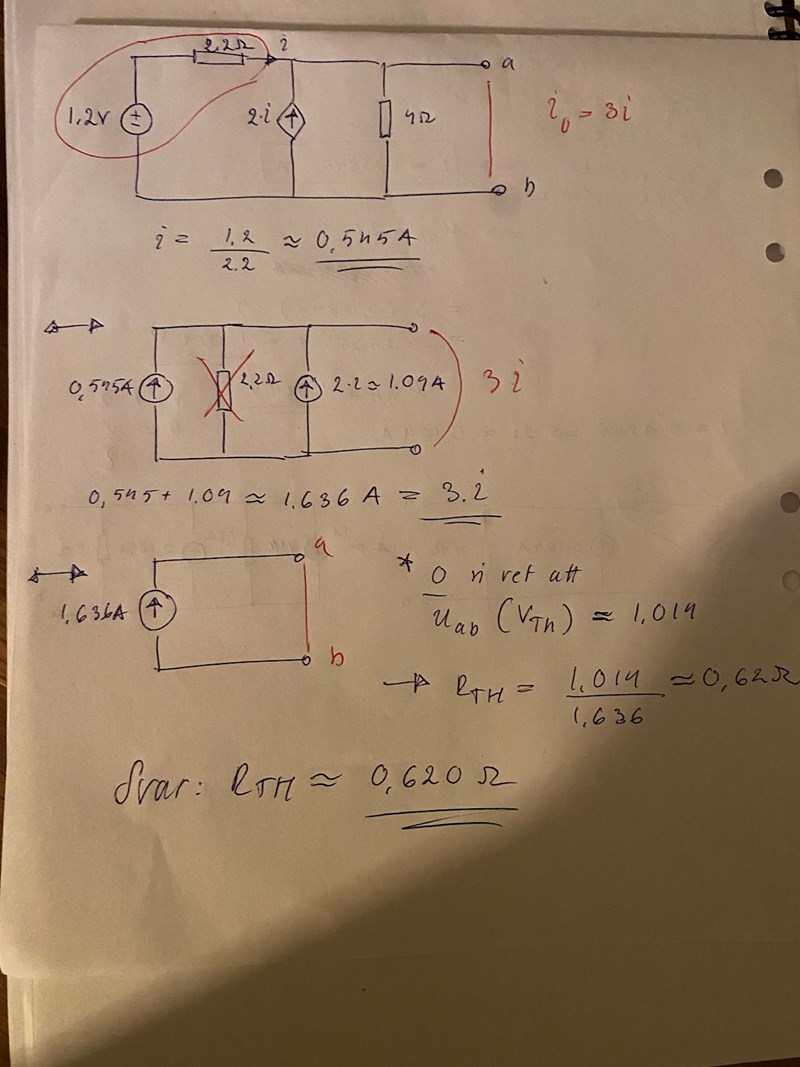 2,2Ω i
a
1.2V ± 2·i 4Ω i₀ = 3i
b
i = 1.2 / 2.2 ≈ 0,545A
0,545A 2,2Ω 2·i ≈ 1.09A 3i
0,545 + 1.09 ≈ 1.636 A = 3·i
a
1,636A
b
* att
Uab (VTh) ≈ 1,014
→ RTH = 1,014 / 1,636 ≈ 0,62Ω
Svar: RTH ≈ 0,620 Ω